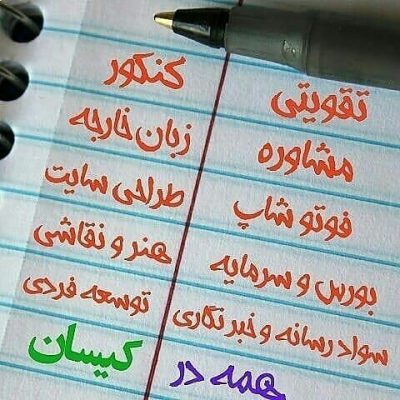 تقویتی
کنکور
مشاوره
زبان خارجه
فوتو شاپ
طراحی سایت
بورس و سرمایه
هنر و نقاشی
سواد رسانه و خبرنگاری
توسعه فردی
همه در
کیسان